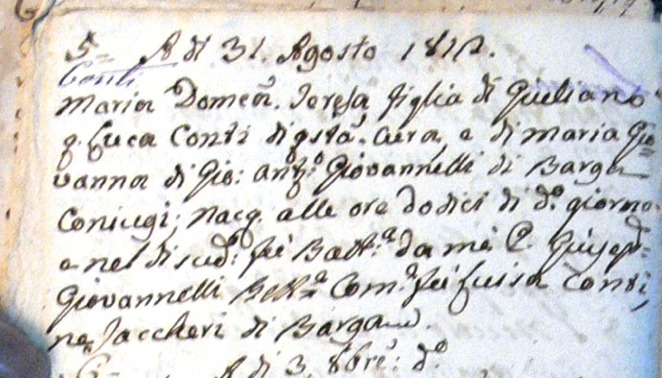 5= A dì 31. Agosto 1812.
Conti
Maria Domen.ª Teresa figlia di Giuliano
q. Luca Conti di q.stª Cura, e di Maria Gio=
vanna di Gio: Ant.º Giovannelli di Barga
Coniugi; nacq. alle ore dodici di d.º giorno
e nel di sud.º fù Batt.ª da me P. Giusep=
Giovannelli Com.ª fù Luisa Conti,
Jaccheri di Barga
A dì 3. 8bre: d.º